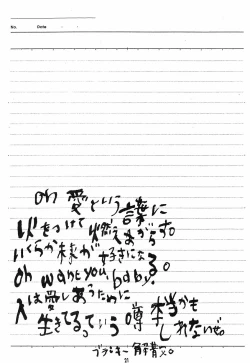 No.
Date
oh 愛という言葉に
火をつけて燃えあがらす。
いくらか未来が好きになる。
oh want you, baby.
人は愛しあうために
生きてるっていう噂
本当かも
しれないぜ。
ブランキー
21